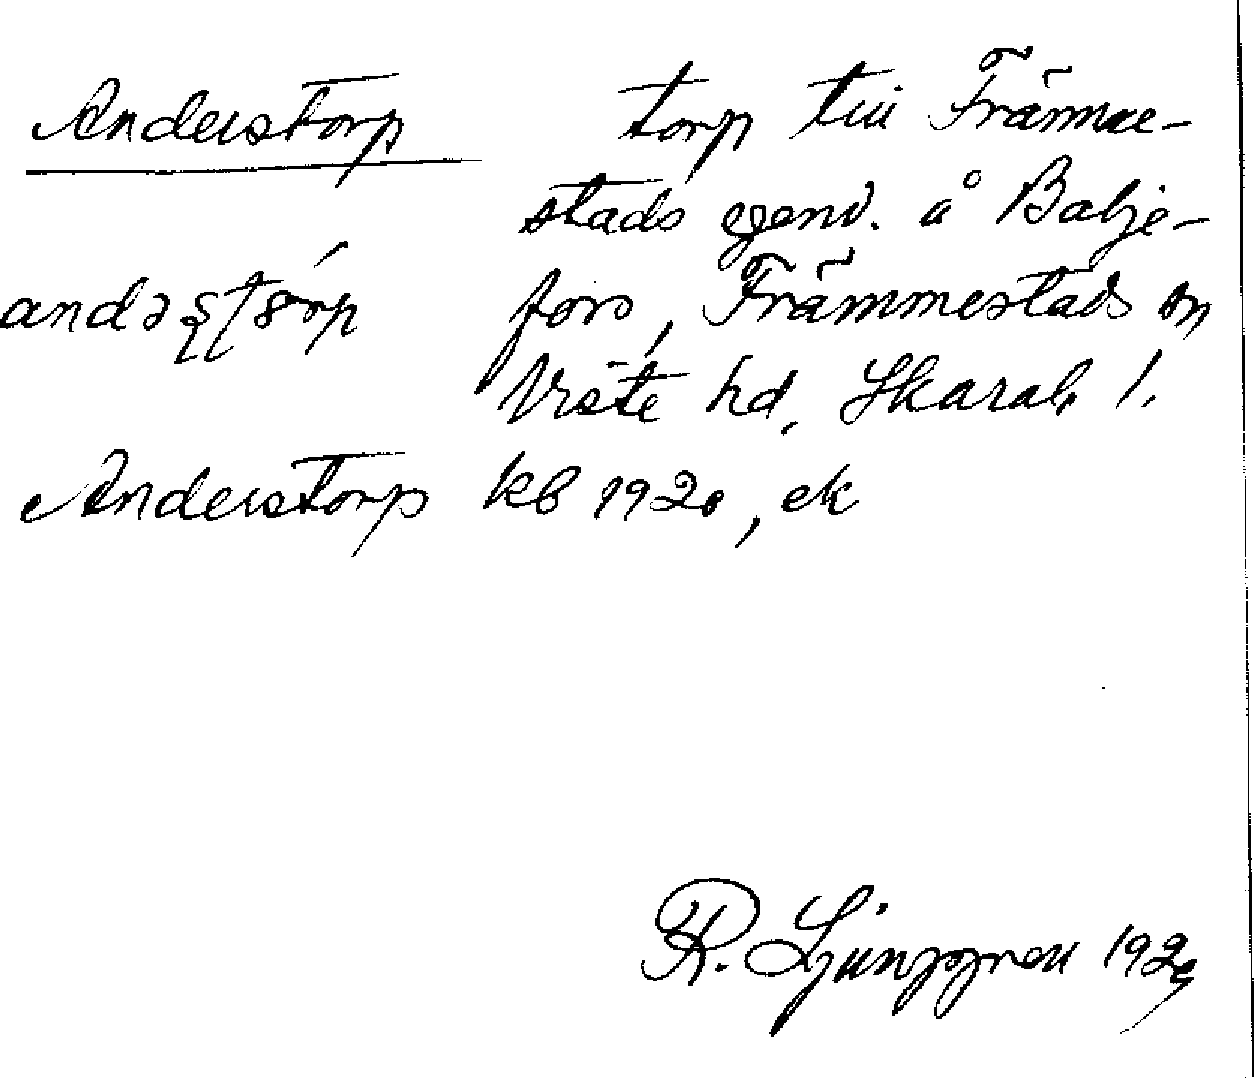 Anderstorp torp till Främme-
stads egend. å Balje-
fors, Främmestads sn
Viste hd, Skarab l.
Anderstorp kb 1920, ek
R. Ljunggren 192